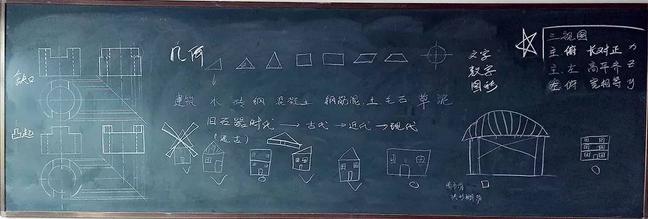 缺口
凸起
几何
文字
数字
图形
三视图
主俯 长对正
主左 高平齐
左俯 宽相等
建筑 木 砖 钢 混凝土 钢筋泥 土 毛石 草泥
旧石器时代 → 古代 → 近代 → 现代
(远古)